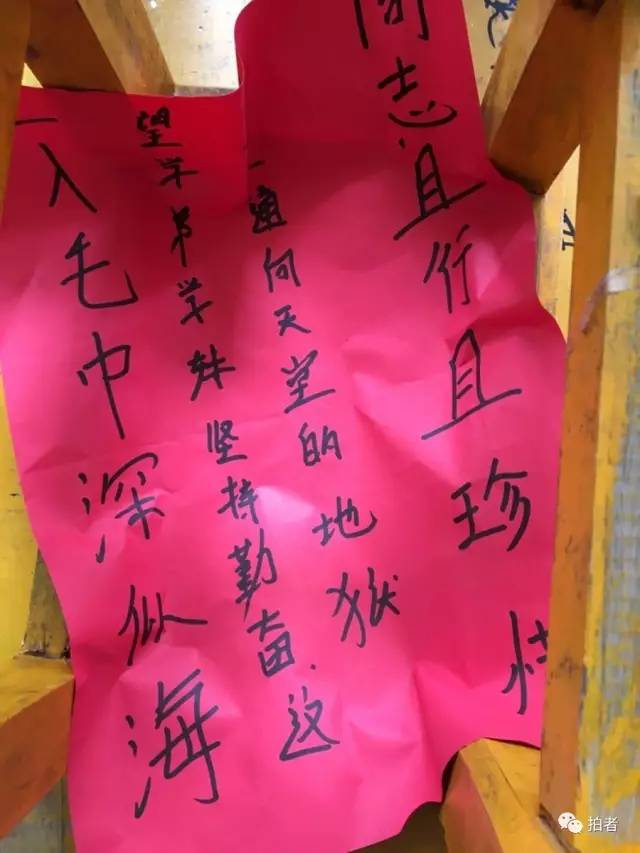 一入毛巾深似海
望学弟学妹坚持勤奋、这
一通向天堂的地狱
同志且行且珍惜
拍者